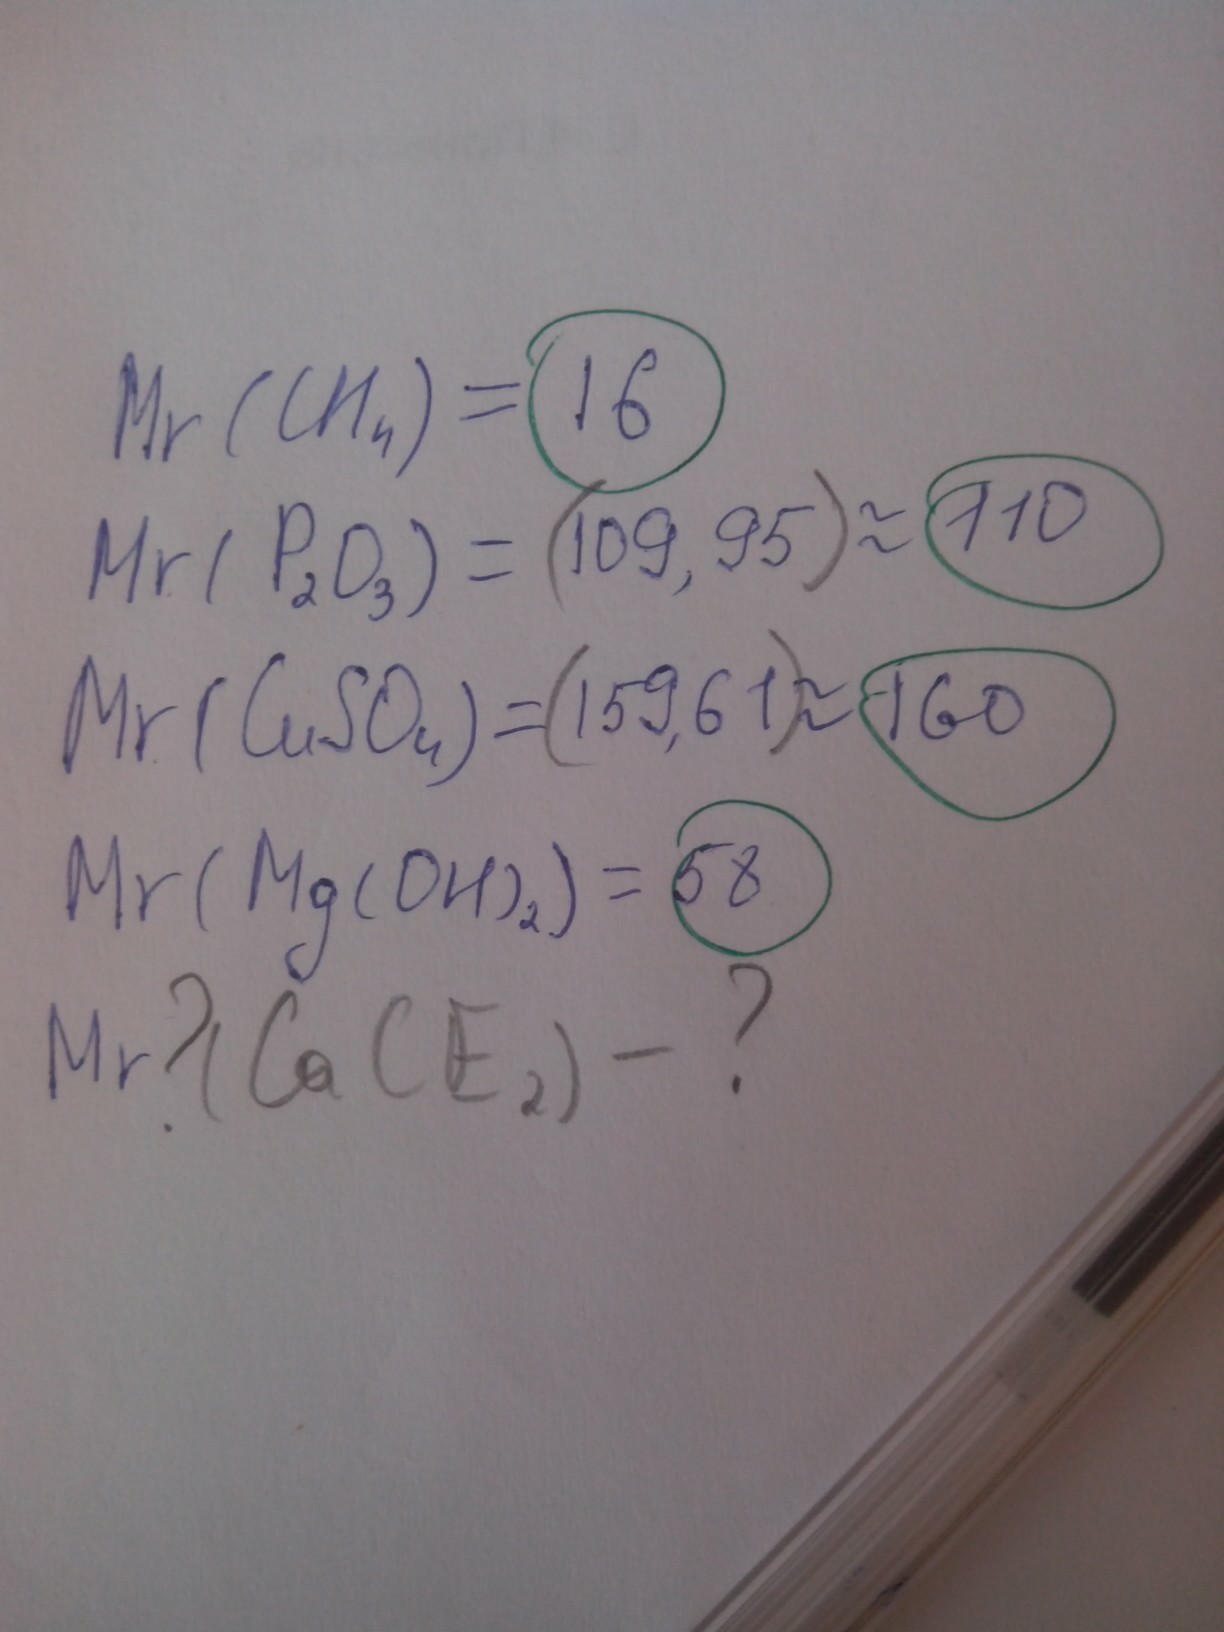 Mr (CH₄) = 16
Mr ( P₂O₃) = (109,95) ≈ 110
Mr (CuSO₄) = (159,61) ≈ 160
Mr (Mg(OH)₂) = 58
Mr ? (Ca C E ₂) – ?